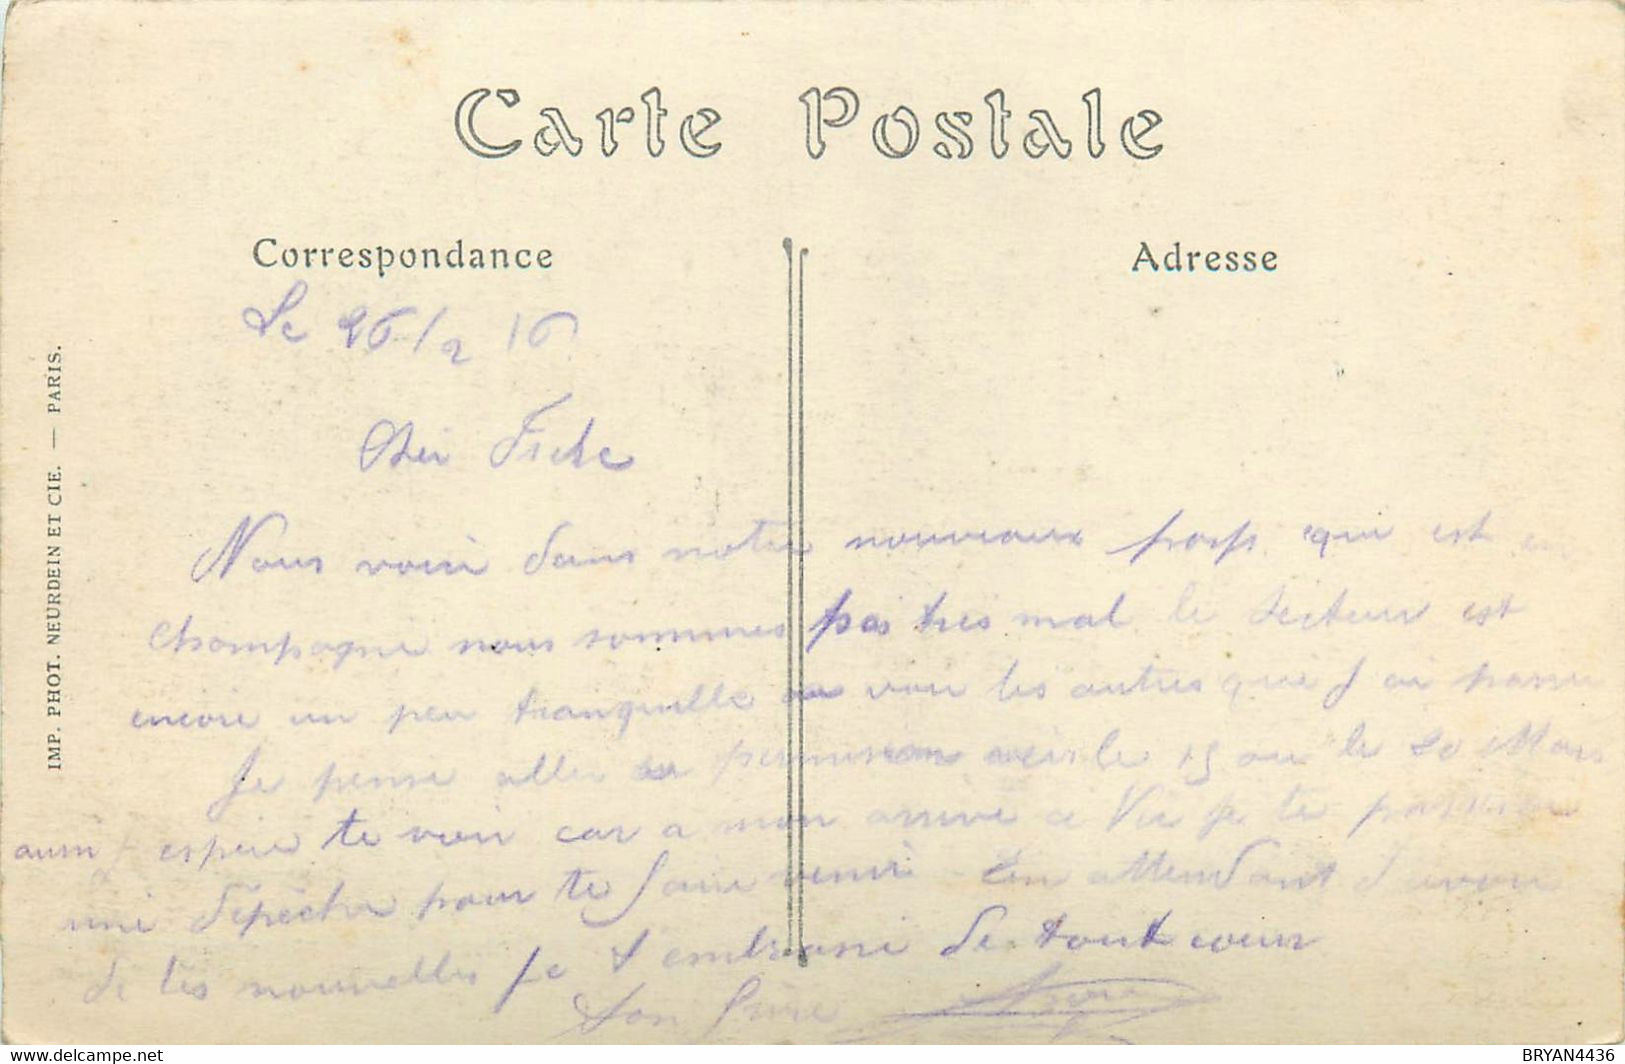 Carte Postale
Correspondance
Adresse
IMP. PHOT. NEURDEIN ET CIE. — PARIS.
Le 26/2 16
Cher
Nous voici dans notre nouveaux qui est en
Champagne nous sommes pas tres mal le secteur est
encore un peu tranquille voir les autres que j ai passer
Je pense aller en permission vers le 15 ou le 20 Mars
aussi j espere te voir car a mon arrive a je te
une dépèche pour te faire venir En attendant d avoir
de tes nouvelles je t embrasse de tout cœur
Ton frère
delcampe.net
BRYAN4436